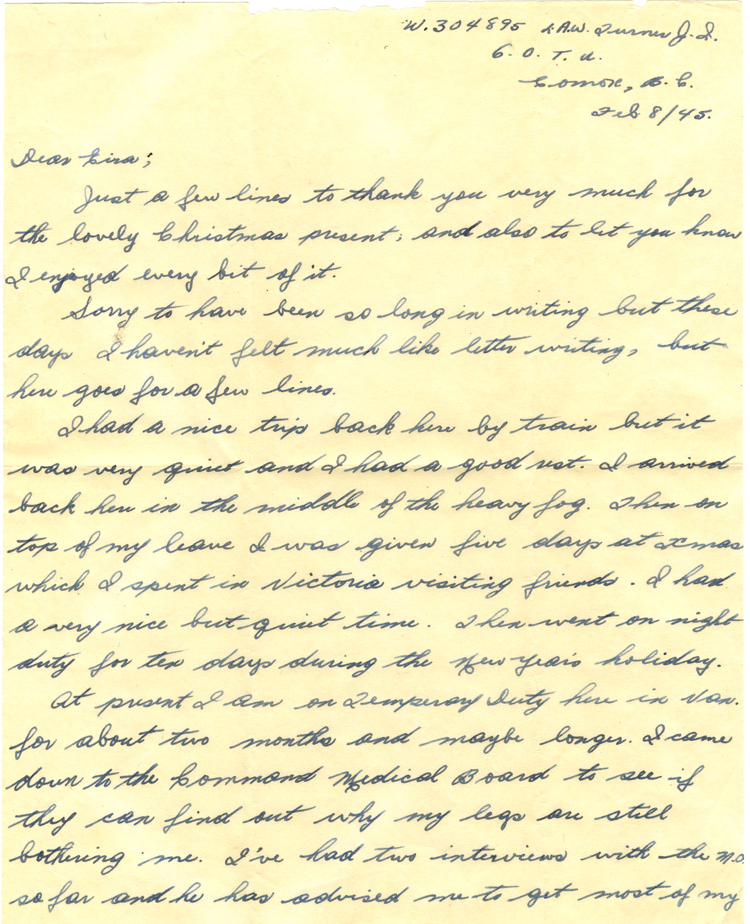 W.304895 L.A.W. Turner J. I.
6. O. T. U.
Comox, B. C.
Feb 8/45.
Dear Cira;
Just a few lines to thank you very much for
the lovely Christmas present; and also to let you know
I enjoyed every bit of it.
Sorry to have been so long in writing but these
days I haven't felt much like letter writing, but
here goes for a few lines.
I had a nice trip back here by train but it
was very quiet and I had a good rest. I arrived
back here in the middle of the heavy fog. Then on
top of my leave I was given five days at Xmas
which I spent in Victoria visiting friends. I had
a very nice but quiet time. Then went on night
duty for ten days during the New Year's holiday.
At present I am on Temperary Duty here in Van.
for about two months and maybe longer. I came
down to the Command Medical Board to see if
they can find out why my legs are still
bothering me. I've had two interviews with the M.O.
so far and he has advised me to get most of my